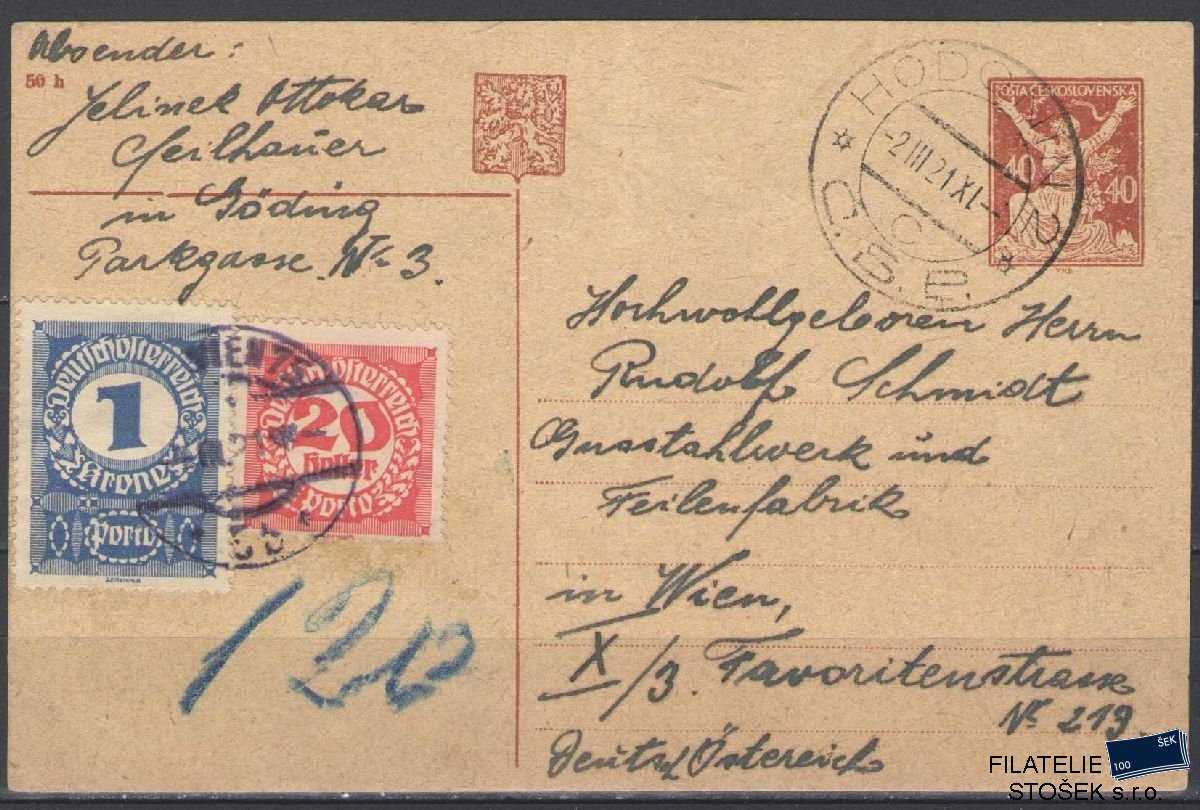 Absender:
50 h
Jelinek Ottokar
Feilhauer
in Göding
Parkgasse Nr. 3.
HODONÍN 2
-2 III 21 XI-
C
Č.S.P.
POŠTA ČESKOSLOVENSKÁ
40 40
Hochwohlgeboren Herrn
Rudolf Schmidt
Gusstahlwerk und
Feilenfabrik
in Wien,
X/3. Favoritenstrasse
Nr. 219.
Deutsch Östereich
Deutschösterreich
1
Krone
Porto
WIEN 75
III.21
Deutschösterreich
20
Heller
Porto
120
FILATELIE
STOŠEK s.r.o.
100
ŠEK